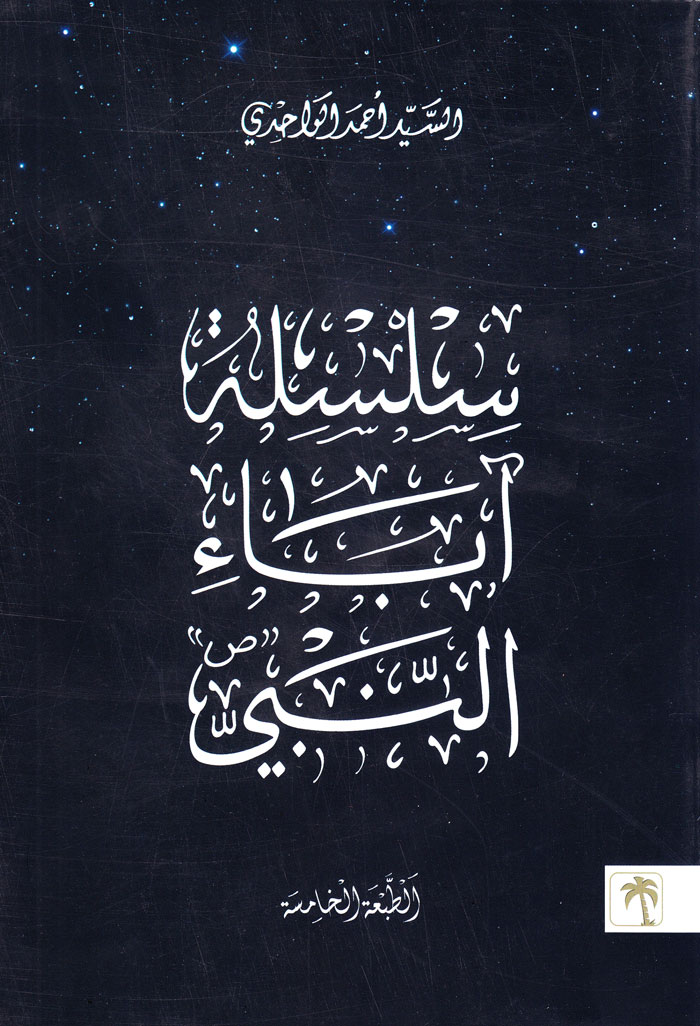 السَّيِّد أحمَد الوَاحِدِي
سِلْسِلَةُ
آبَاءِ
النَّبْيِّ "ص"
اَلطَّبْعَة الْخَامِسَة